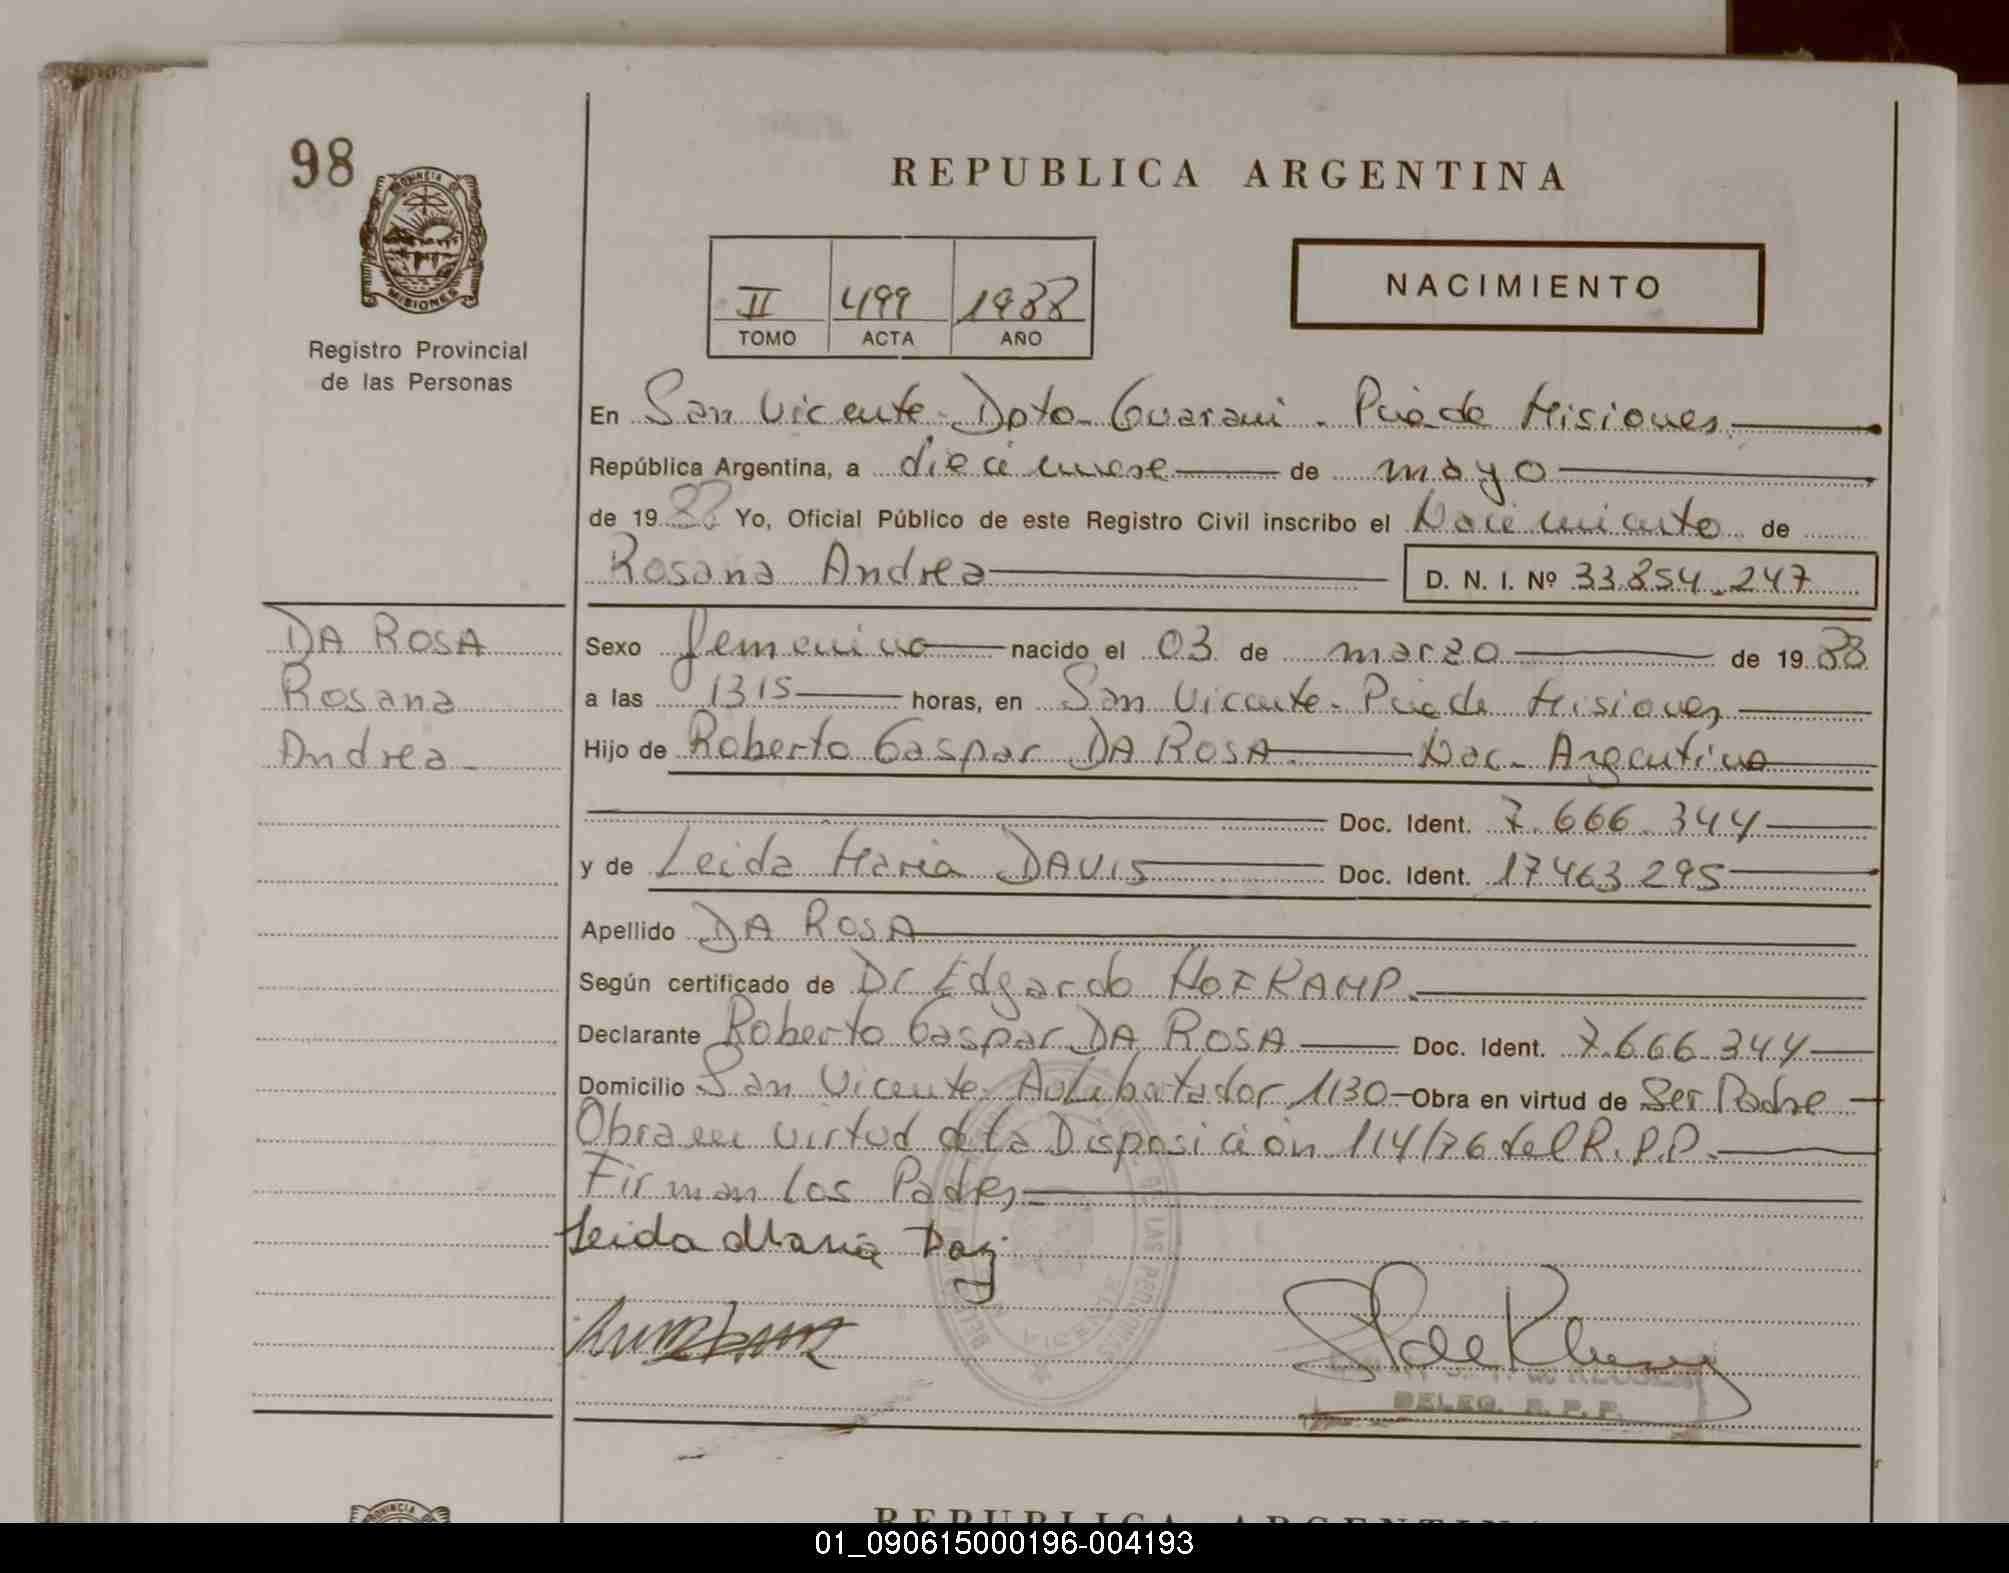 98
PROVINCIA DE
MISIONES
Registro Provincial
de las Personas
REPUBLICA ARGENTINA
II 499 1988
TOMO ACTA AÑO
NACIMIENTO
En San Vicente - Dpto - Guarani - Pcia de Misiones
República Argentina, a diecinueve de mayo
de 1988 Yo, Oficial Público de este Registro Civil inscribo el Nacimiento de
Rosana Andrea D. N. I. Nº 33.854.247
DA ROSA
Rosana
Andrea
Sexo femenino nacido el 03 de marzo de 1988
a las 1315 horas, en San Vicente - Pcia de Misiones
Hijo de Roberto Gaspar DA ROSA Nac- Argentino
Doc. Ident. 7.666.344
y de Leida Maria DAVIS Doc. Ident. 17463295
Apellido DA ROSA
Según certificado de Dr Edgardo HOFKAMP
Declarante Roberto Gaspar DA ROSA Doc. Ident. 7.666.344
Domicilio San Vicente - Av Libertador 1130 - Obra en virtud de Ser Padre
Obra en virtud de la Disposición 114/76 del R.P.P.
Firman los Padres
Leida Maria
DE LAS PERSONAS
VICENTE
DELEG. R. P. P.
PROVINCIA
REPUBLICA ARGENTINA
01_090615000196-004193